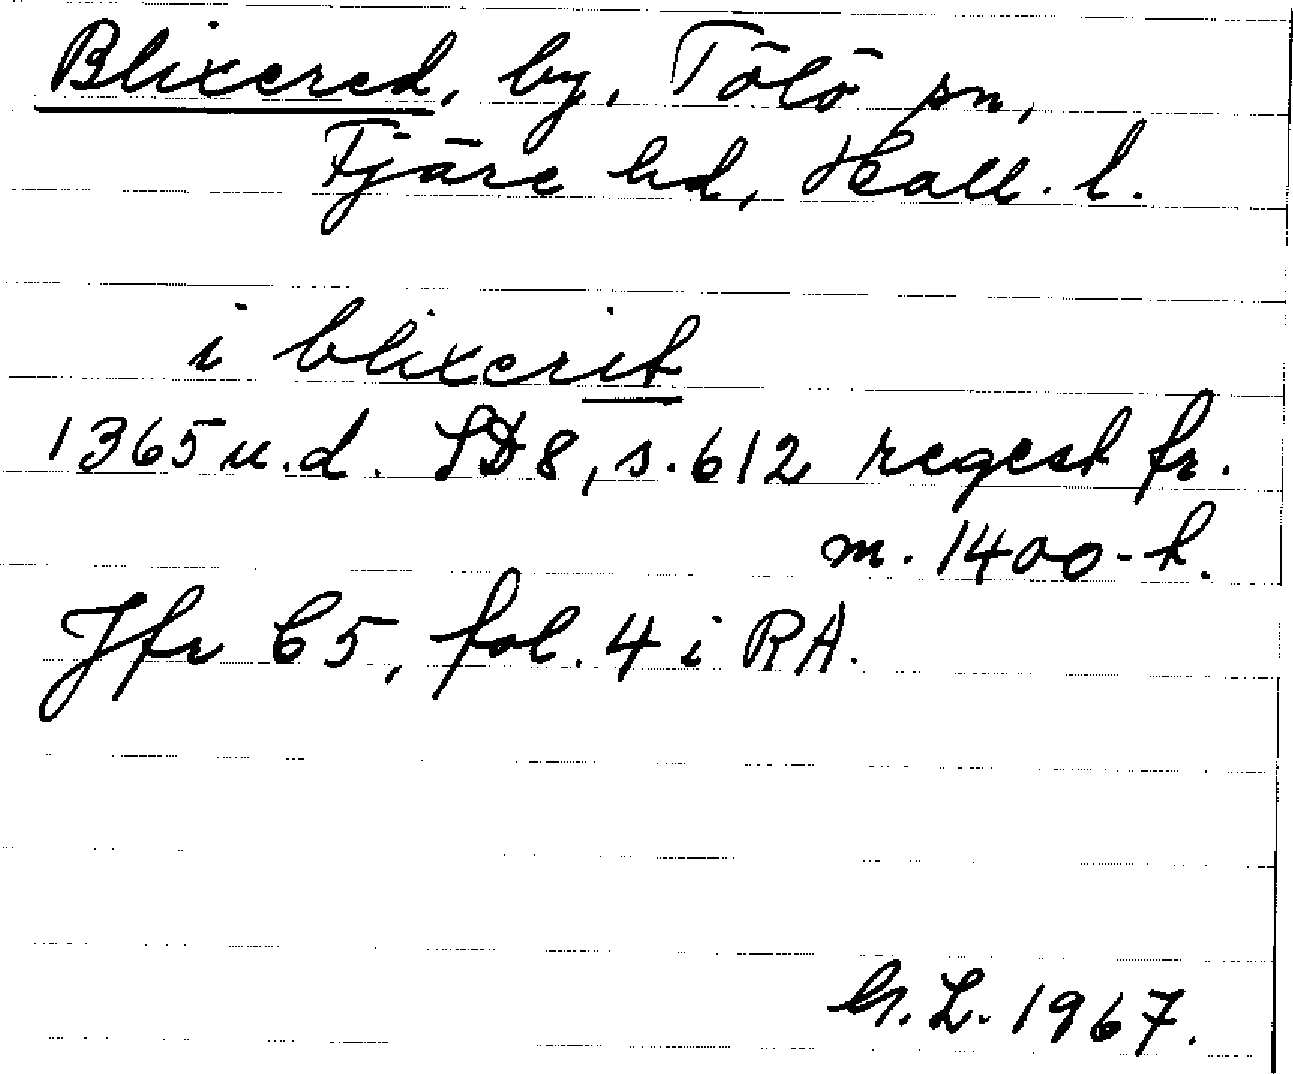 Blixered, by, Tölö sn,
Fjäre hd, Hall. l.
i blixerit
1365 u.d. SD 8, s. 612 regest fr.
m. 1400-t.
Jfr C5, fol. 4 i RA.
G. L. 1967.